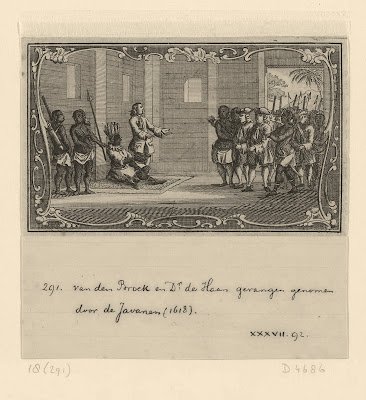 291. van den Broeck en Dr de Haan gevangen genomen
door de Javanen (1618).
XXXVII. 92.
18 (291) D 4686